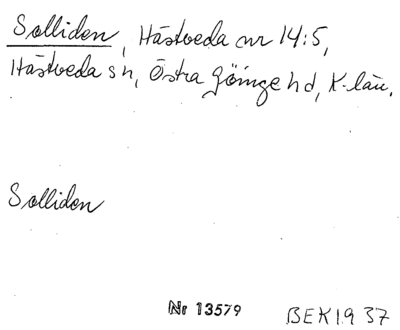 Solliden, Hästveda nr 14:5,
Hästveda sn, Östra Göinge hd, K-län.
Solliden
Nr 13579 BEK19 37